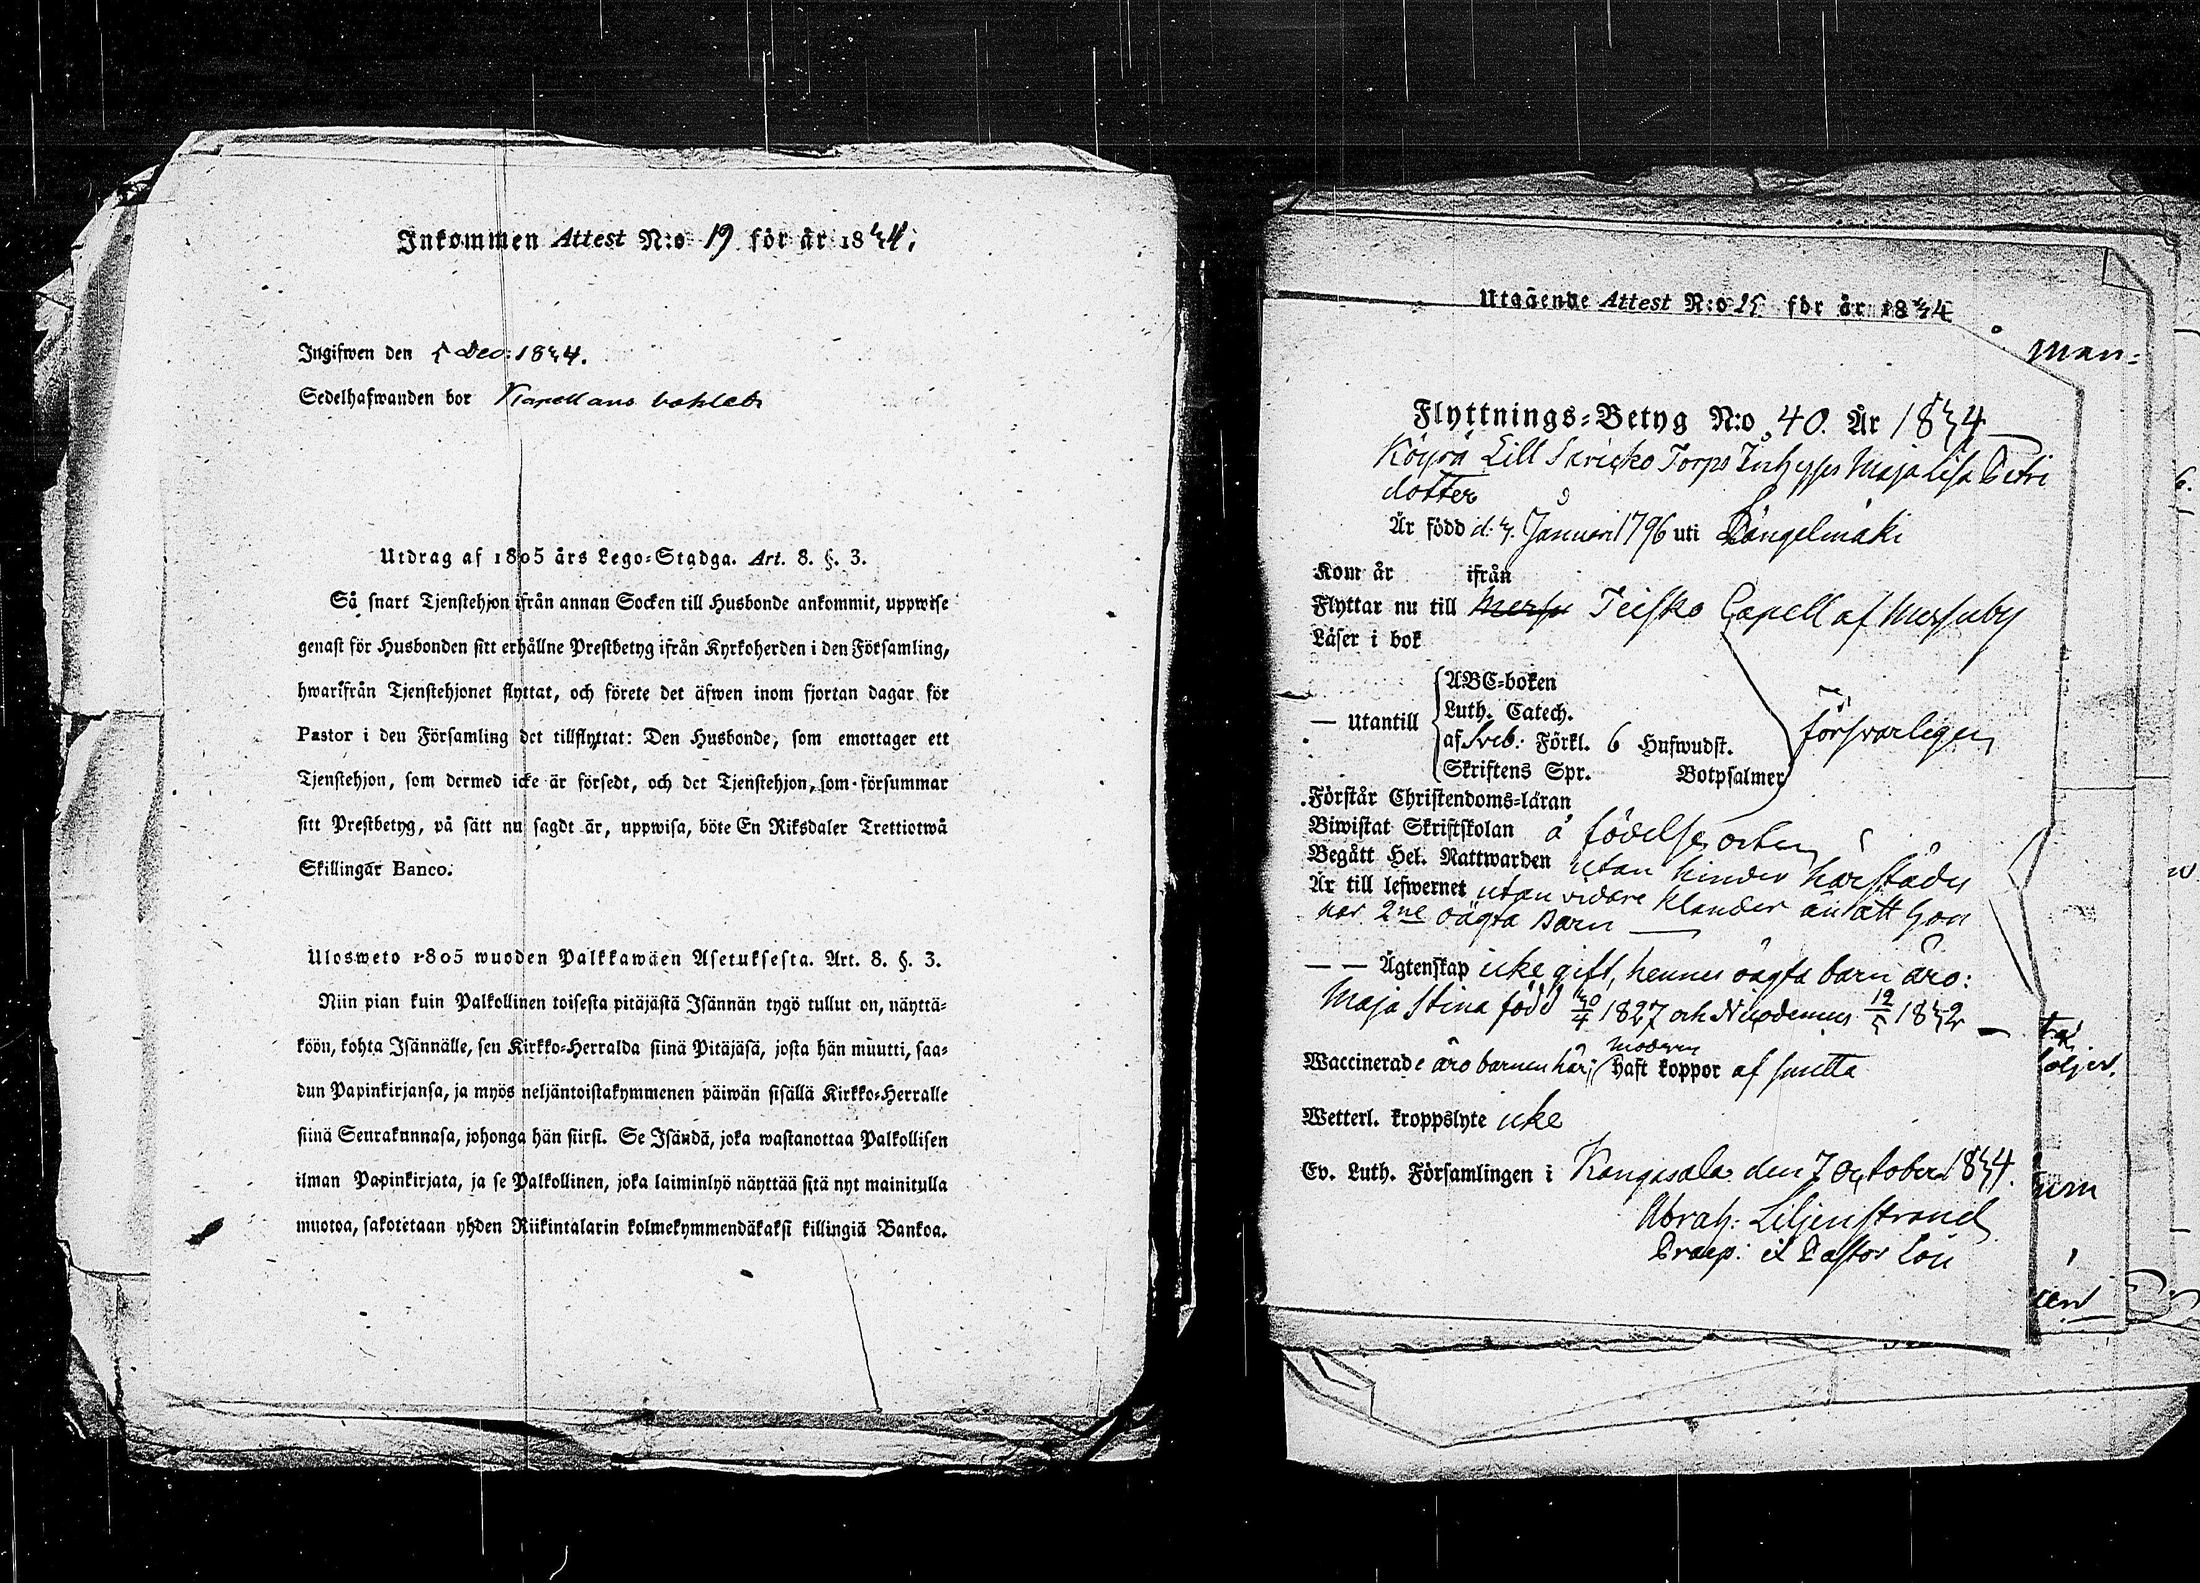 Inkommen Attest N:o 19 för år 1834.
Ingifwen den 5 Dec: 1834.
Sedelhafwanden bor Kapellans bohlet
Utdrag af 1805 års Lego-Stadga. Art. 8. §. 3.
Så snart Tjenstehjon ifrån annan Socken till Husbonde ankommit, uppwise
genast för Husbonden sitt erhållne Prestbetyg ifrån Kyrkoherden i den Församling,
hwarifrån Tjenstehjonet flyttat, och förete det äfwen inom fjortan dagar för
Pastor i den Församling det tillflyttat: Den Husbonde, som emottager ett
Tjenstehjon, som dermed icke är försedt, och det Tjenstehjon, som försummar
sitt Prestbetyg, på sätt nu sagdt är, uppwisa, böte En Riksdaler Trettiotwå
Skillingar Banco.
Ulosweto 1805 wuoden Palkkawäen Asetuksesta. Art. 8. §. 3.
Niin pian kuin Palkollinen toisesta pitäjästä Isännän tygö tullut on, näyttä-
köön, kohta Isännälle, sen Kirkko-Herralda siinä Pitäjäsä, josta hän muutti, saa-
dun Papinkirjansa, ja myös neljäntoistakymmenen päiwän sisällä Kirkko-Herralle
siinä Seurakunnasa, johonga hän siirsi. Se Isändä, joka wastanottaa Palkollisen
ilman Papinkirjata, ja se Palkollinen, joka laiminlyö näyttää sitä nyt mainitulla
muotoa, sakotetaan yhden Riikintalarin kolmekymmendäkaksi killingiä Bankoa.
Utgående Attest N:o 25 för år 1834
man=
Flyttnings-Betyg N:o 40. År 1834
Köyrä Lill Skricko Torps Inhyses Maja Lisa Petri
dotter
Är född d: 3. Januari 1796 uti Längelmäki
Kom år ifrån
Flyttar nu till Teisko Capell af Messuby
Läser i bok
— Utantill
ABC-boken
Luth. Catech.
af Sveb: Förkl. 6 Hufwudst.
Skriftens Spr. Botpsalmer
försvarligen
Förstår Christendoms-läran
Biwistat Skriftskolan å födelseorten
Begått Hel. Nattwarden utan hinder härstädes
Är till lefwernet utan vidare klander än att hon
har 2ne oägta Barn —
— — Ägtenskap icke gift, hennes oägta barn äro:
Maja Stina född 30/4 1827 och Nicodemus 12/5 1832 —
Waccinerade äro barnen här; modren haft koppor af smitta
Wetterl. kroppslyte icke
Ev. Luth. Församlingen i Kangasala den 7 October 1834.
Abrah: Liljenstrand
Praep: et Pastor loci